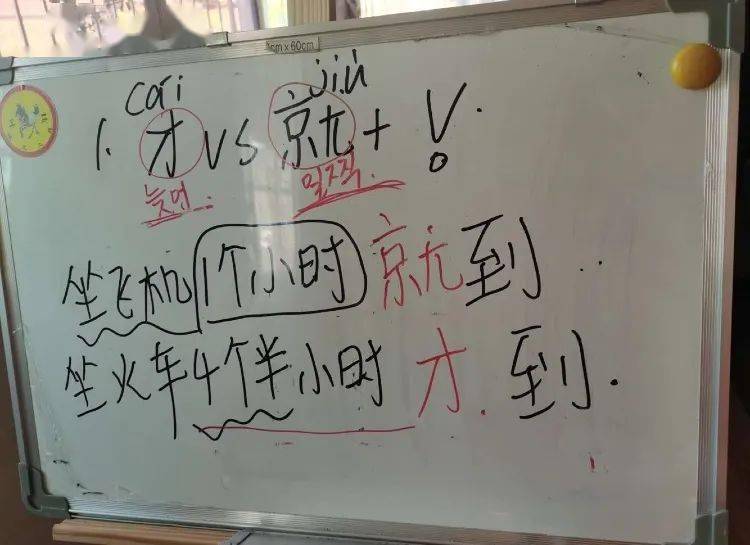 cm x 60cm
cái jiù
1. 才 VS 就 + V.
늦어.. 일직.
坐飞机1个小时就到..
坐火车4个半小时才到.